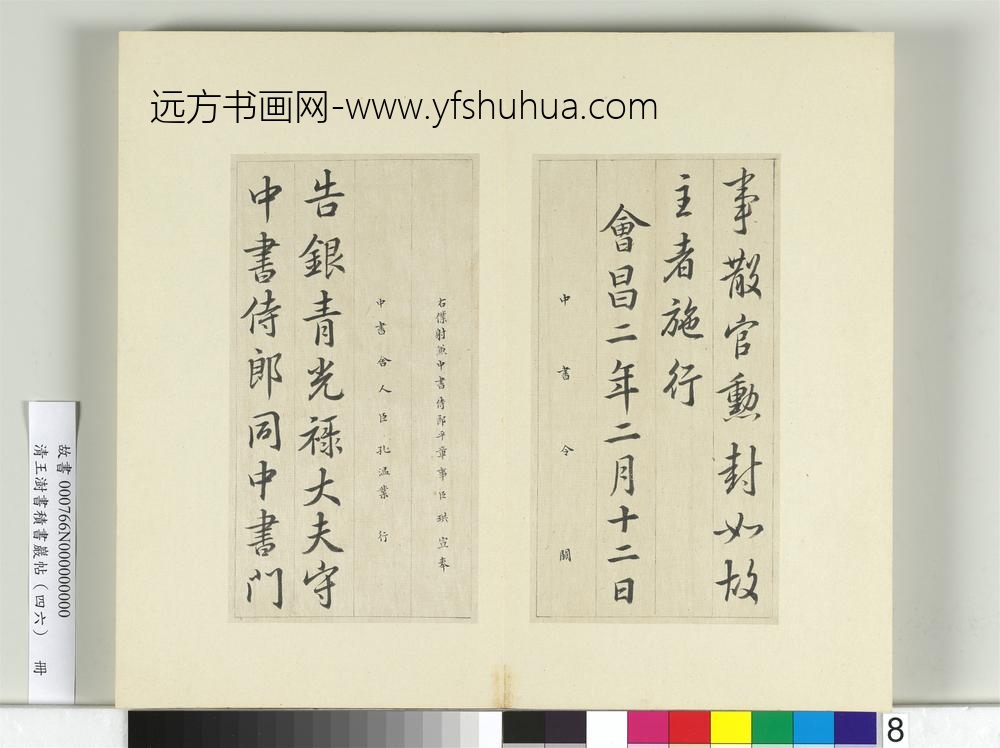 远方书画网-www.yfshuhua.com
事散官勳封如故
主者施行
會昌二年二月十二日
中書令闕
右僕射兼中書侍郎平章事臣珙宣奉
中書舍人臣孔温業行
告銀青光祿大夫守
中書侍郎同中書門
故書000766N000000000
清王澍書積書巖帖(四六) 冊
8